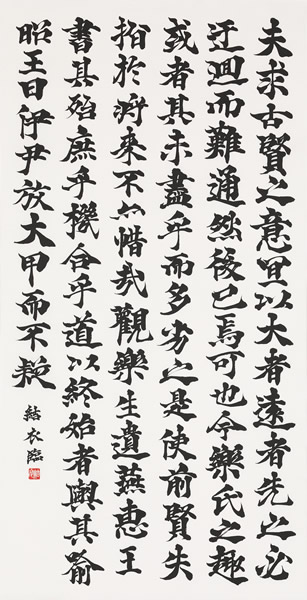 夫求古賢之意宜以大者遠者先之必
迂迴而難通然後已焉可也今樂氏之趣
或者其未盡乎而多劣之是使前賢失
指於将来不亦惜哉觀樂生遺燕惠王
書其殆庶乎機合乎道以終始者與其喻
昭王曰伊尹放大甲而不疑
結衣臨